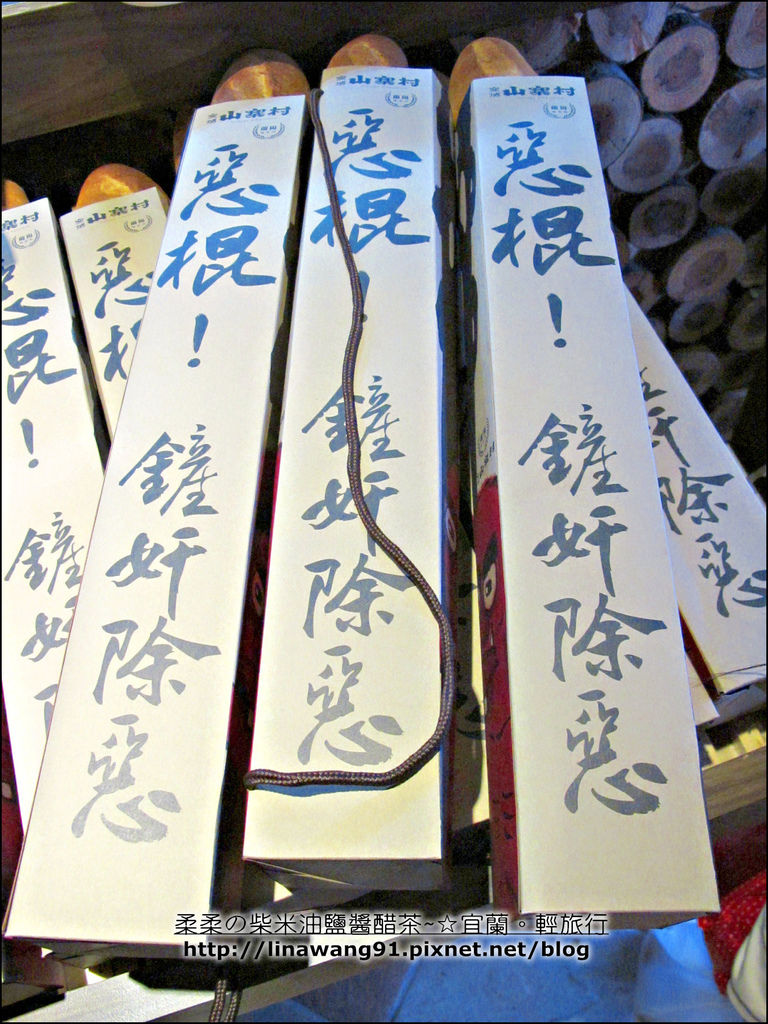 山寨村
惡棍！
鏟奸除惡
山寨村
惡棍！
鏟奸除惡
山寨村
惡棍！
鏟奸除惡
山寨村
惡棍
山寨村
惡棍！
鏟奸除
奸除惡
柔柔の柴米油鹽醬醋茶~☆宜蘭。輕旅行
http://linawang91.pixnet.net/blog